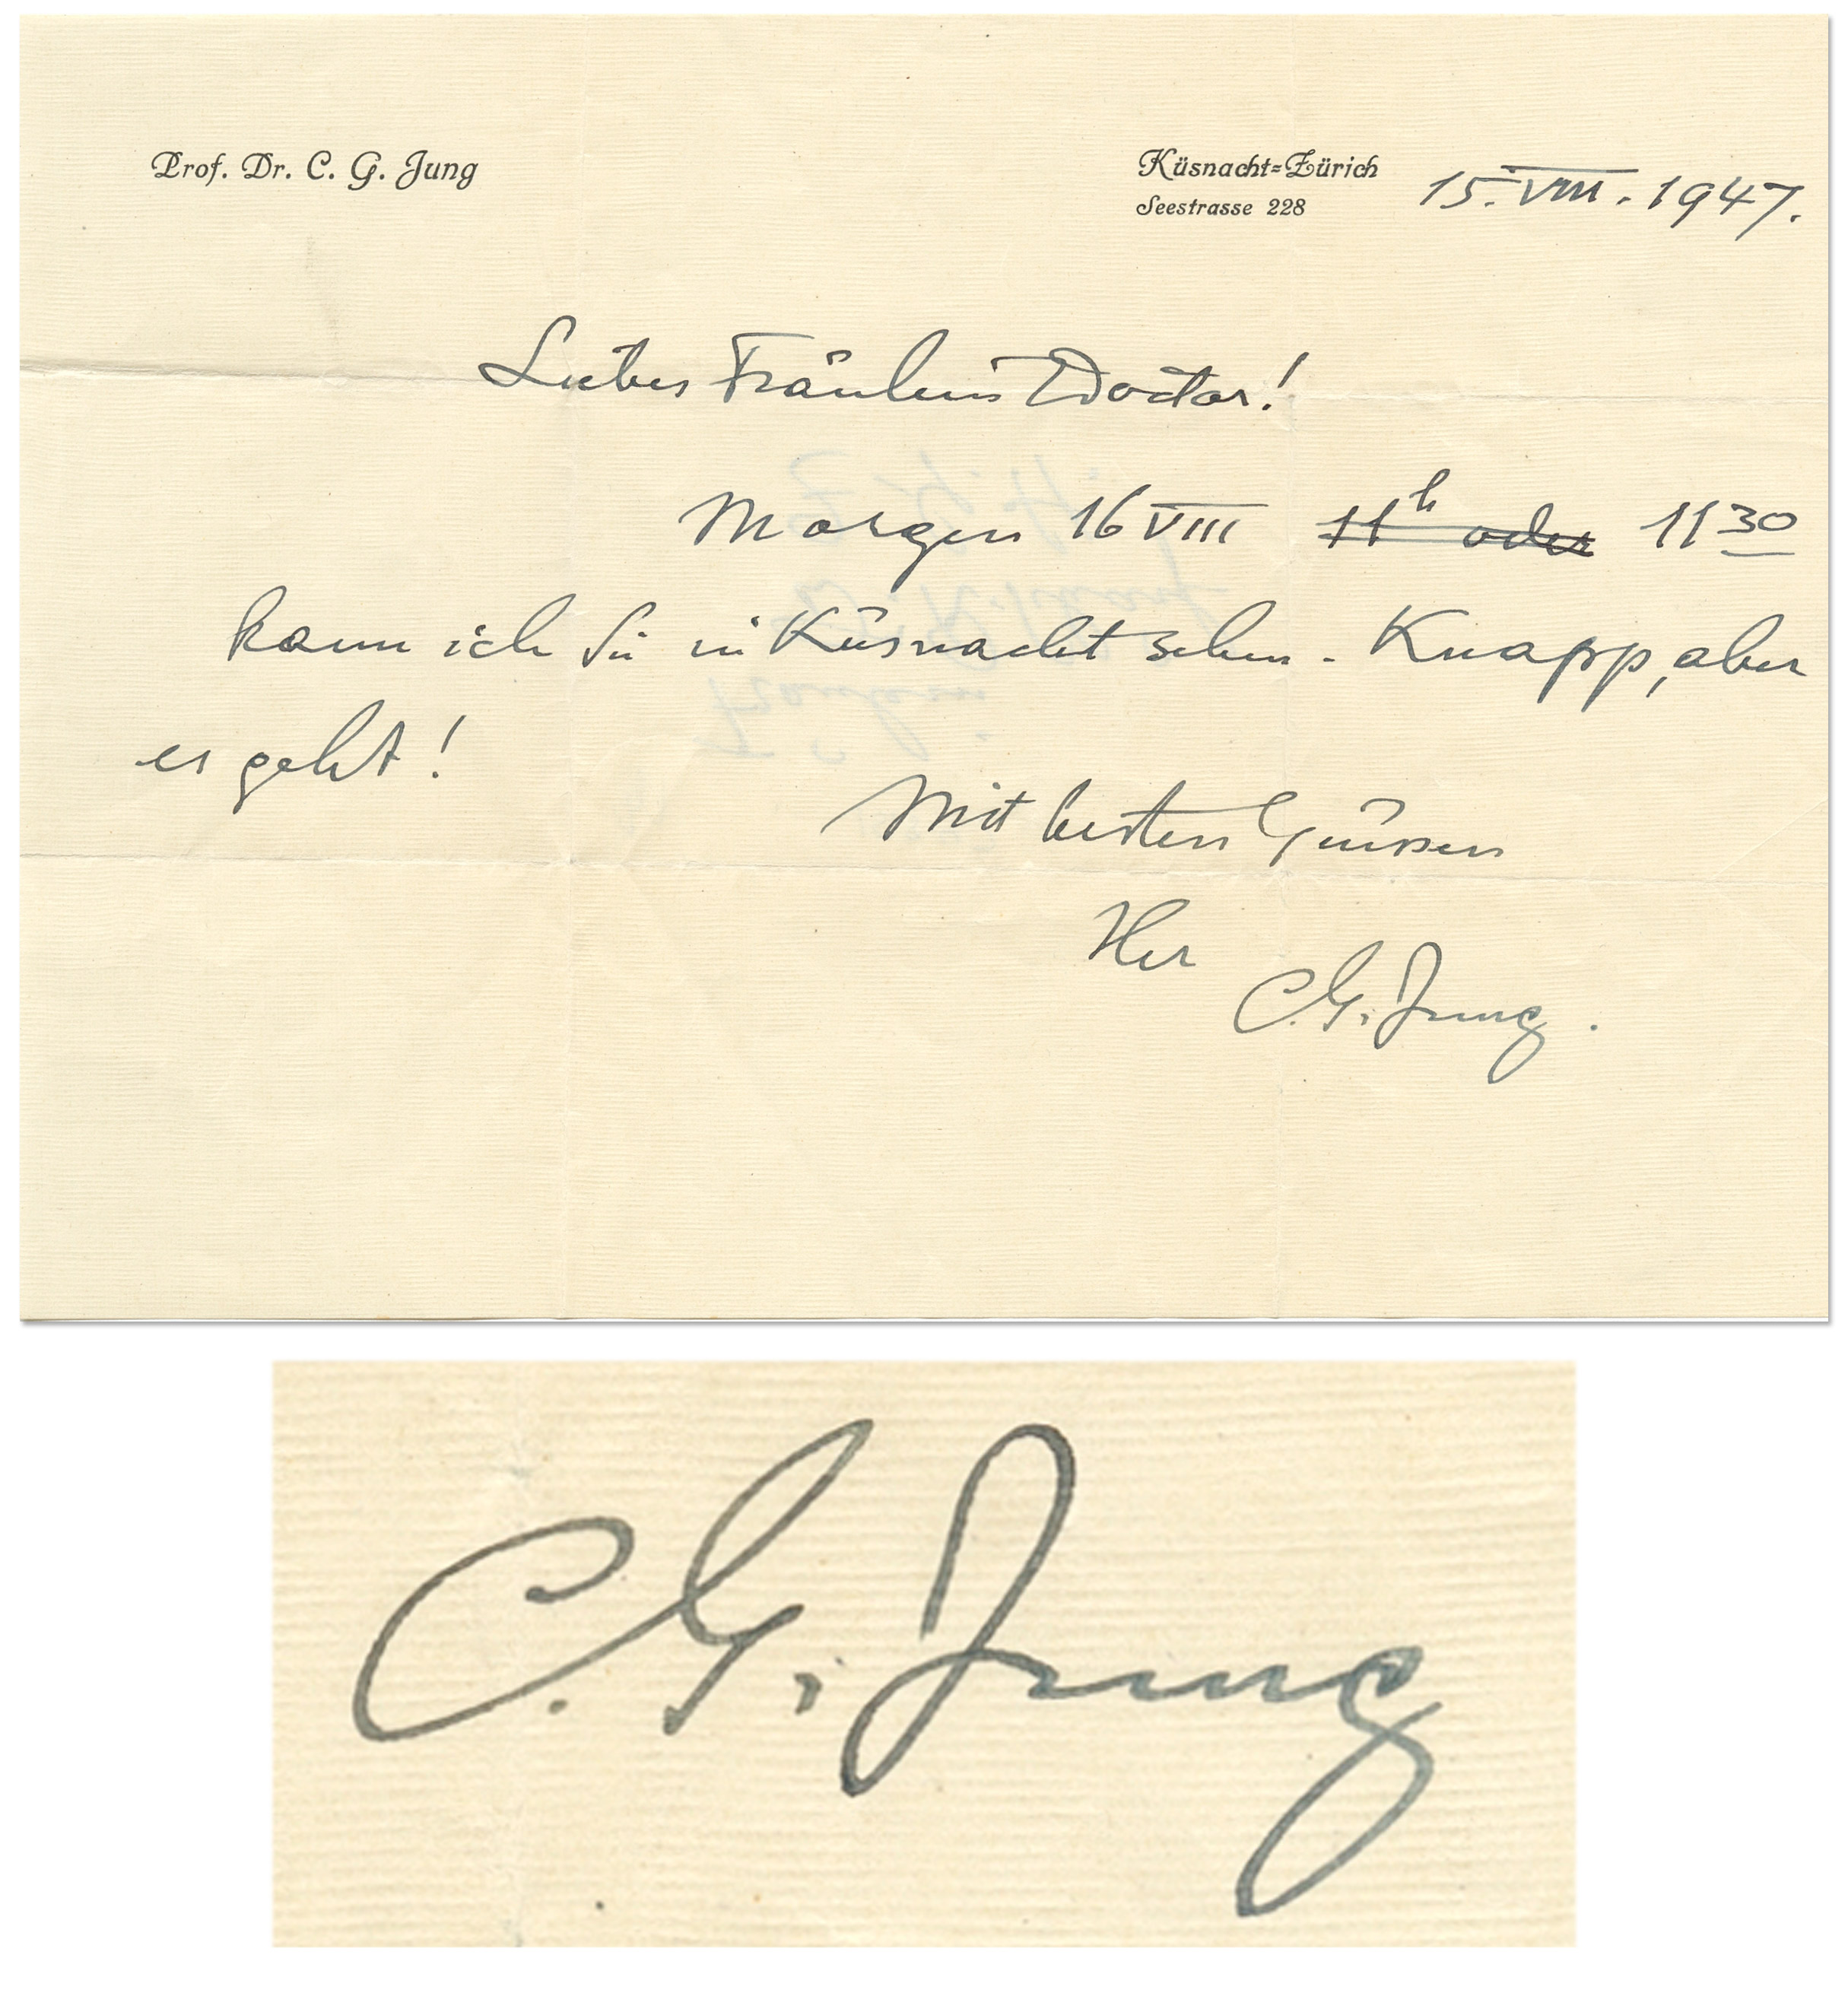 Prof. Dr. C. G. Jung
Küsnacht=Zürich 15. VIII. 1947.
Seestrasse 228
Liebes Fräulein Doctor!
Morgen 16 VIII 11h oder 11 30
kann ich Sie in Küsnacht sehen. Knapp, aber
es geht!
Mit besten Grüssen
Ihr
C. G. Jung.
C. G. Jung